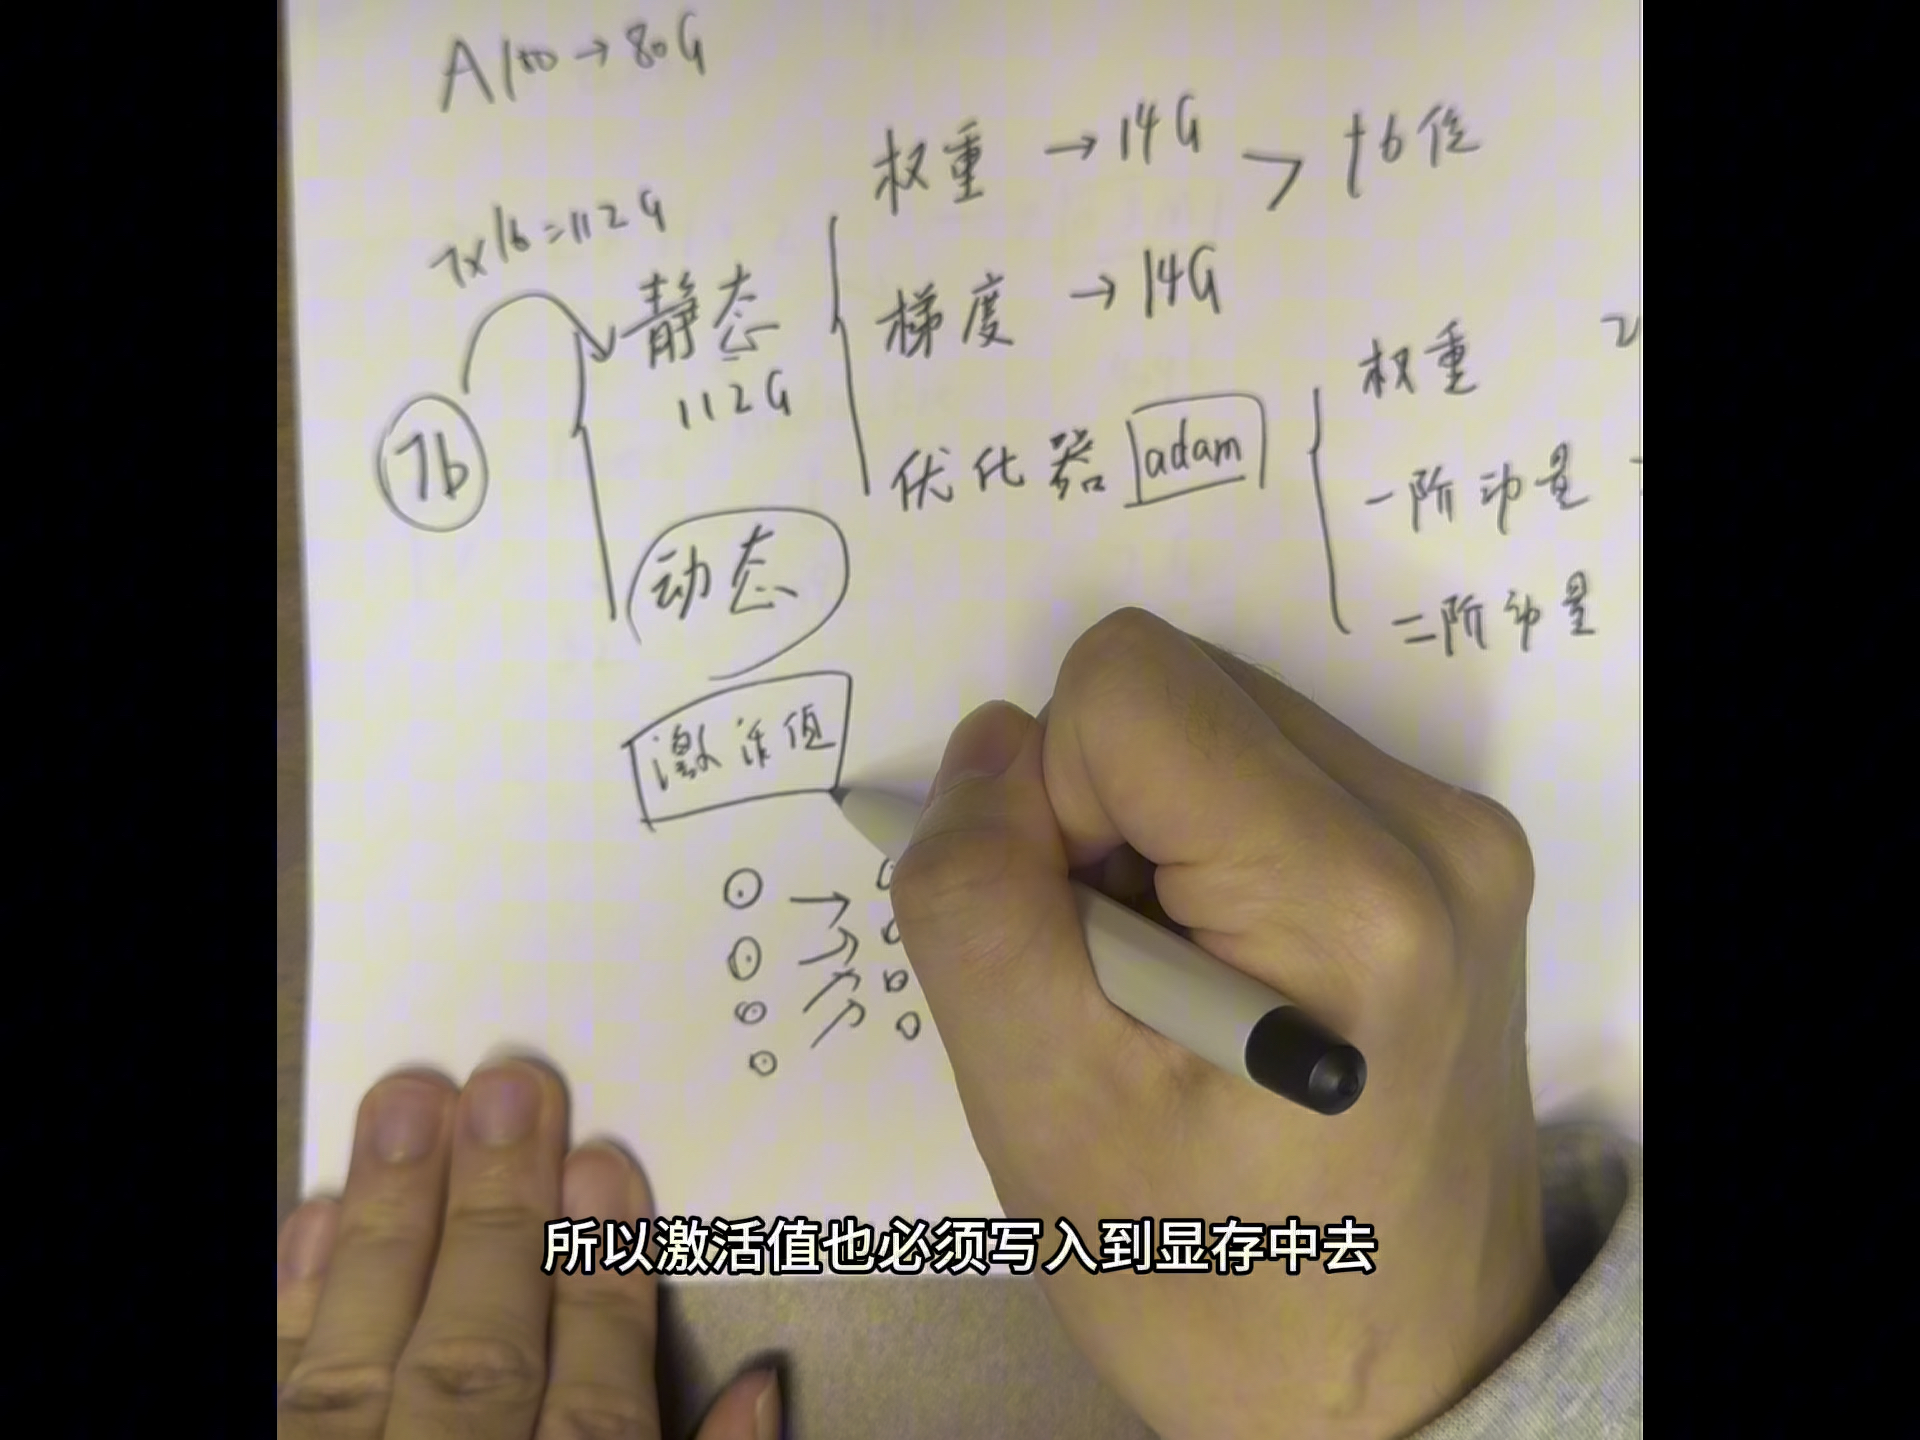 A100→80G
权重 →14G > 16位
7x16=112G
静态
112G
梯度 →14G
7b
优化器 adam
权重
一阶动量
二阶动量
动态
激活值
所以激活值也必须写入到显存中去